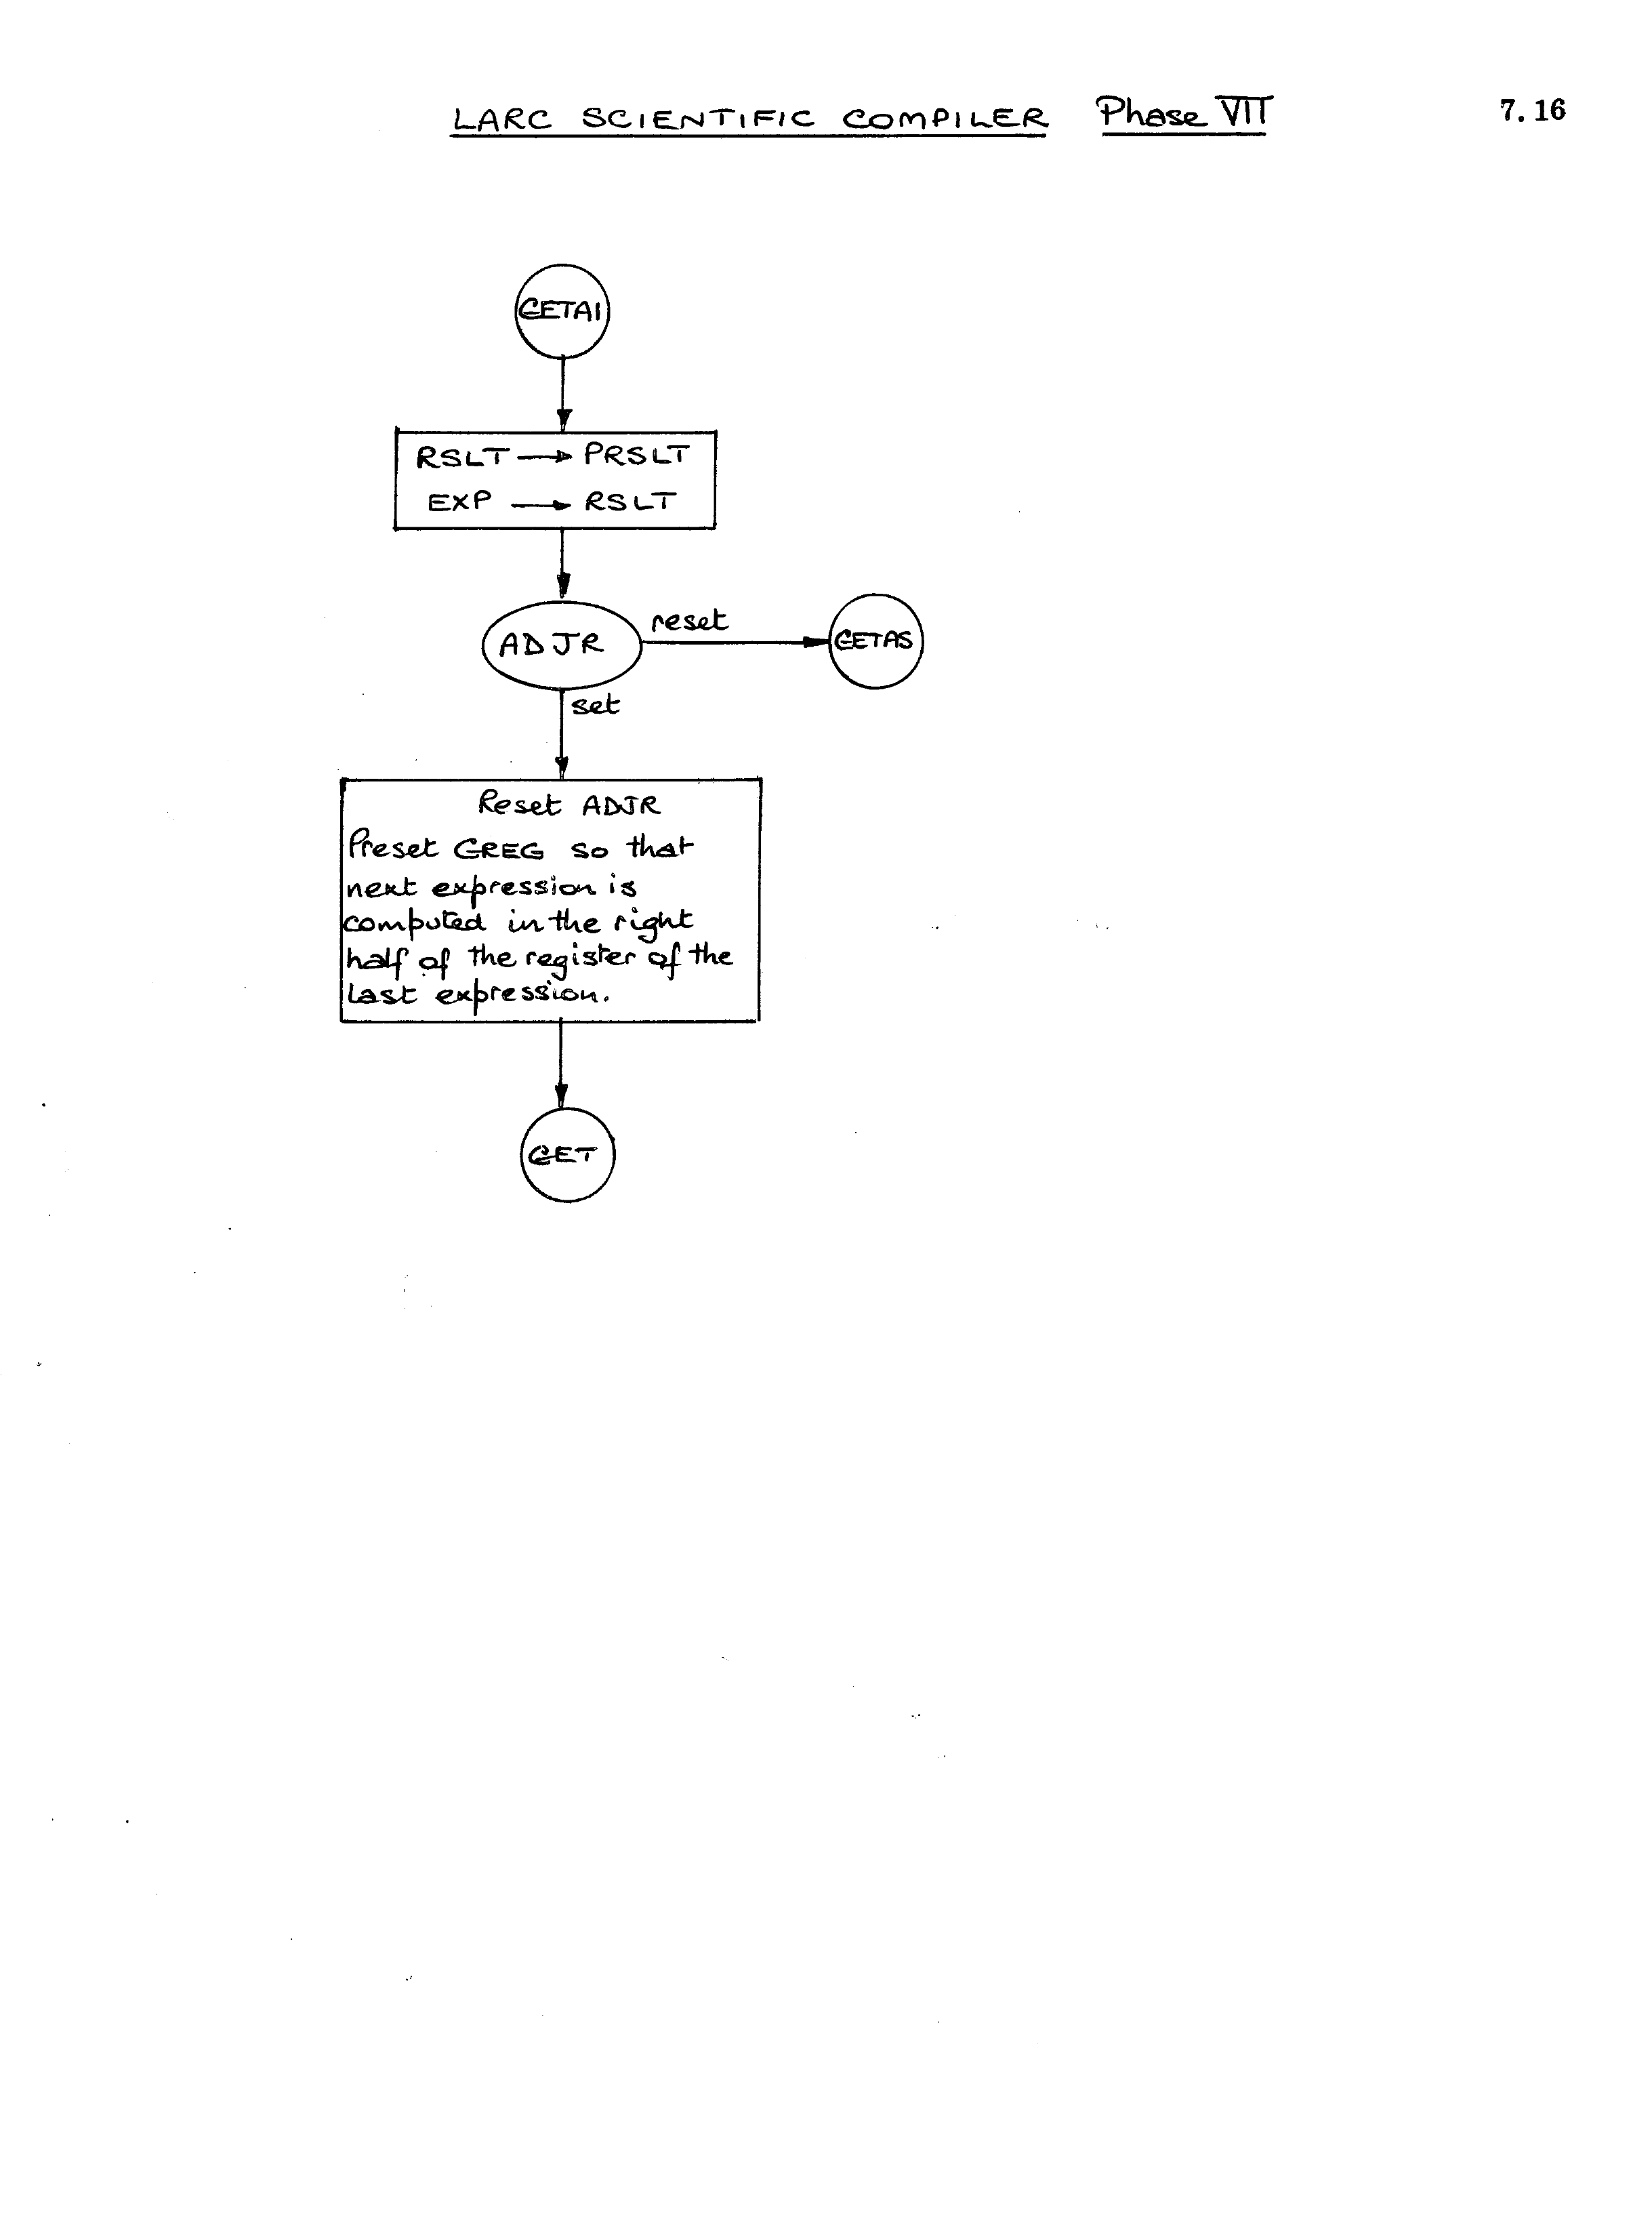 LARC SCIENTIFIC COMPILER Phase VII
7.16
GETA1
RSLT → PRSLT
EXP → RSLT
ADJR
reset
GETAS
set
Reset ADJR
Preset GREG so that
next expression is
computed in the right
half of the register of the
last expression.
GET